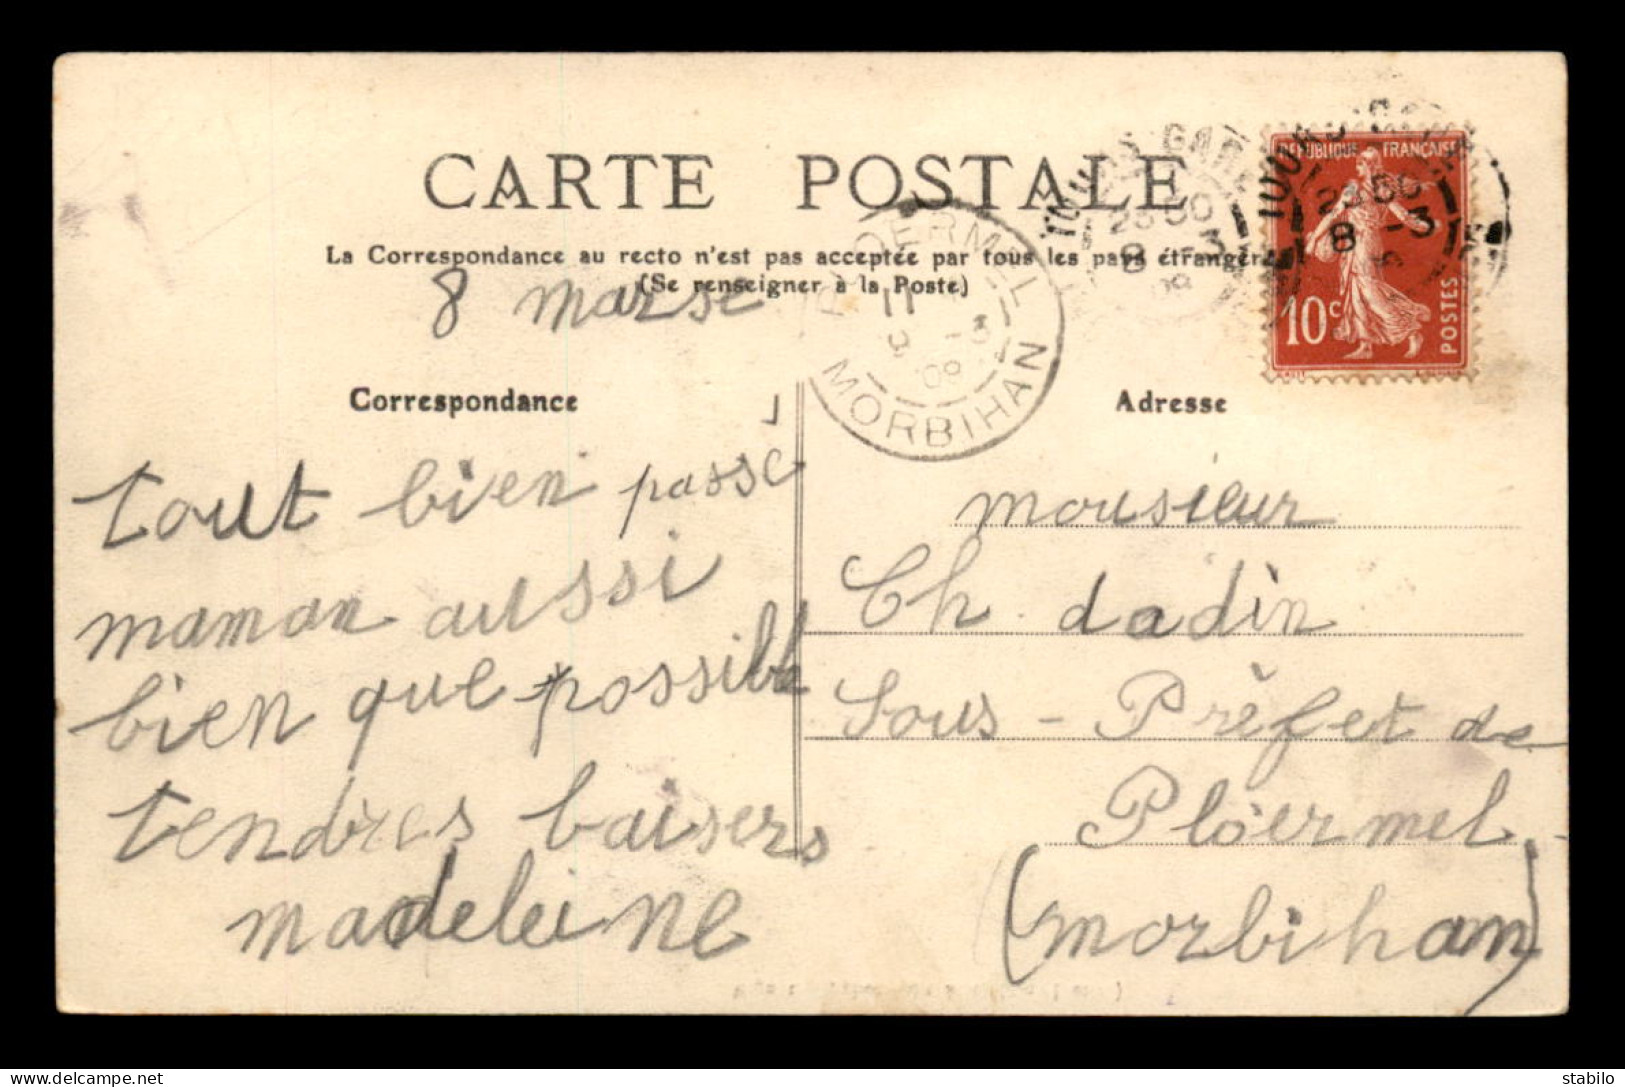 CARTE POSTALE
La Correspondance au recto n'est pas acceptée par tous les pays étrangers
(Se renseigner à la Poste)
8 marse
PLOERMEL
11
9 -3
09
MORBIHAN
TOURS GARE
23 50
8 -3
09
TOURS GARE
23 50
8 -3
RÉPUBLIQUE FRANÇAISE
10c
POSTES
Correspondance
tout bien passé
maman aussi
bien que possible
tendres baisers
madeleine
Adresse
monsieur
Ch. dadin
Sous-Prèfet de
Ploërmel
(morbihan)
stabilo